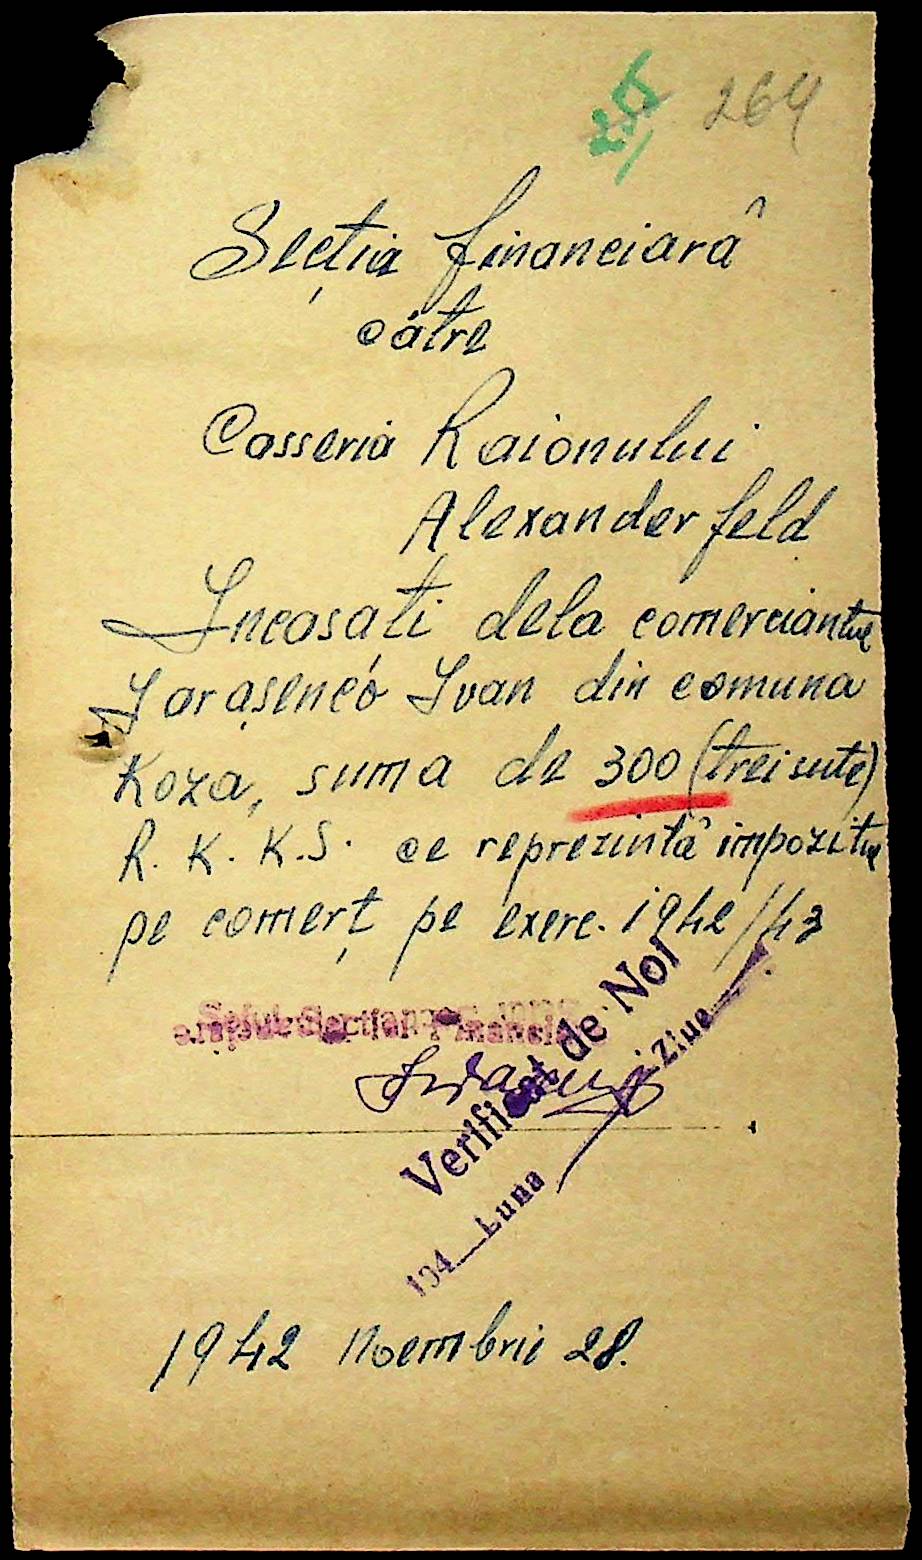 264
Secția financiară
către
Casseria Raionului
Alexanderfeld
Incasati dela comerciantul
Tarașenco Ivan din comuna
Koza, suma de 300 (trei sute)
R. K. K. S. ce reprezintă impozitul
pe comerț pe exerc. 1942/43
Secției Financiare
Verificat de Noi
194 Luna Ziua
1942 Noembrie 28.